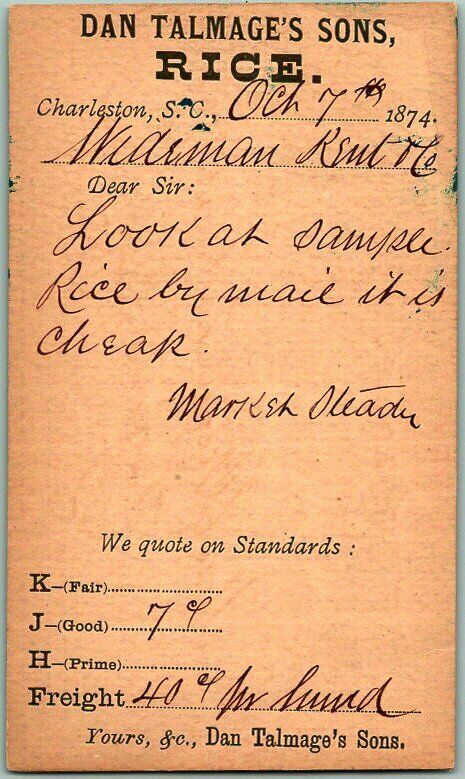 DAN TALMAGE'S SONS,
RICE.
Charleston, S. C., Oct 7th 1874.
Wideman Kent & Co
Dear Sir:
Look at sample
Rice by mail it is
cheap.
Market Steady
We quote on Standards:
K—(Fair)
J—(Good) 7 ¢
H—(Prime)
Freight 40 ¢ pr hund
Yours, &c., Dan Talmage's Sons.